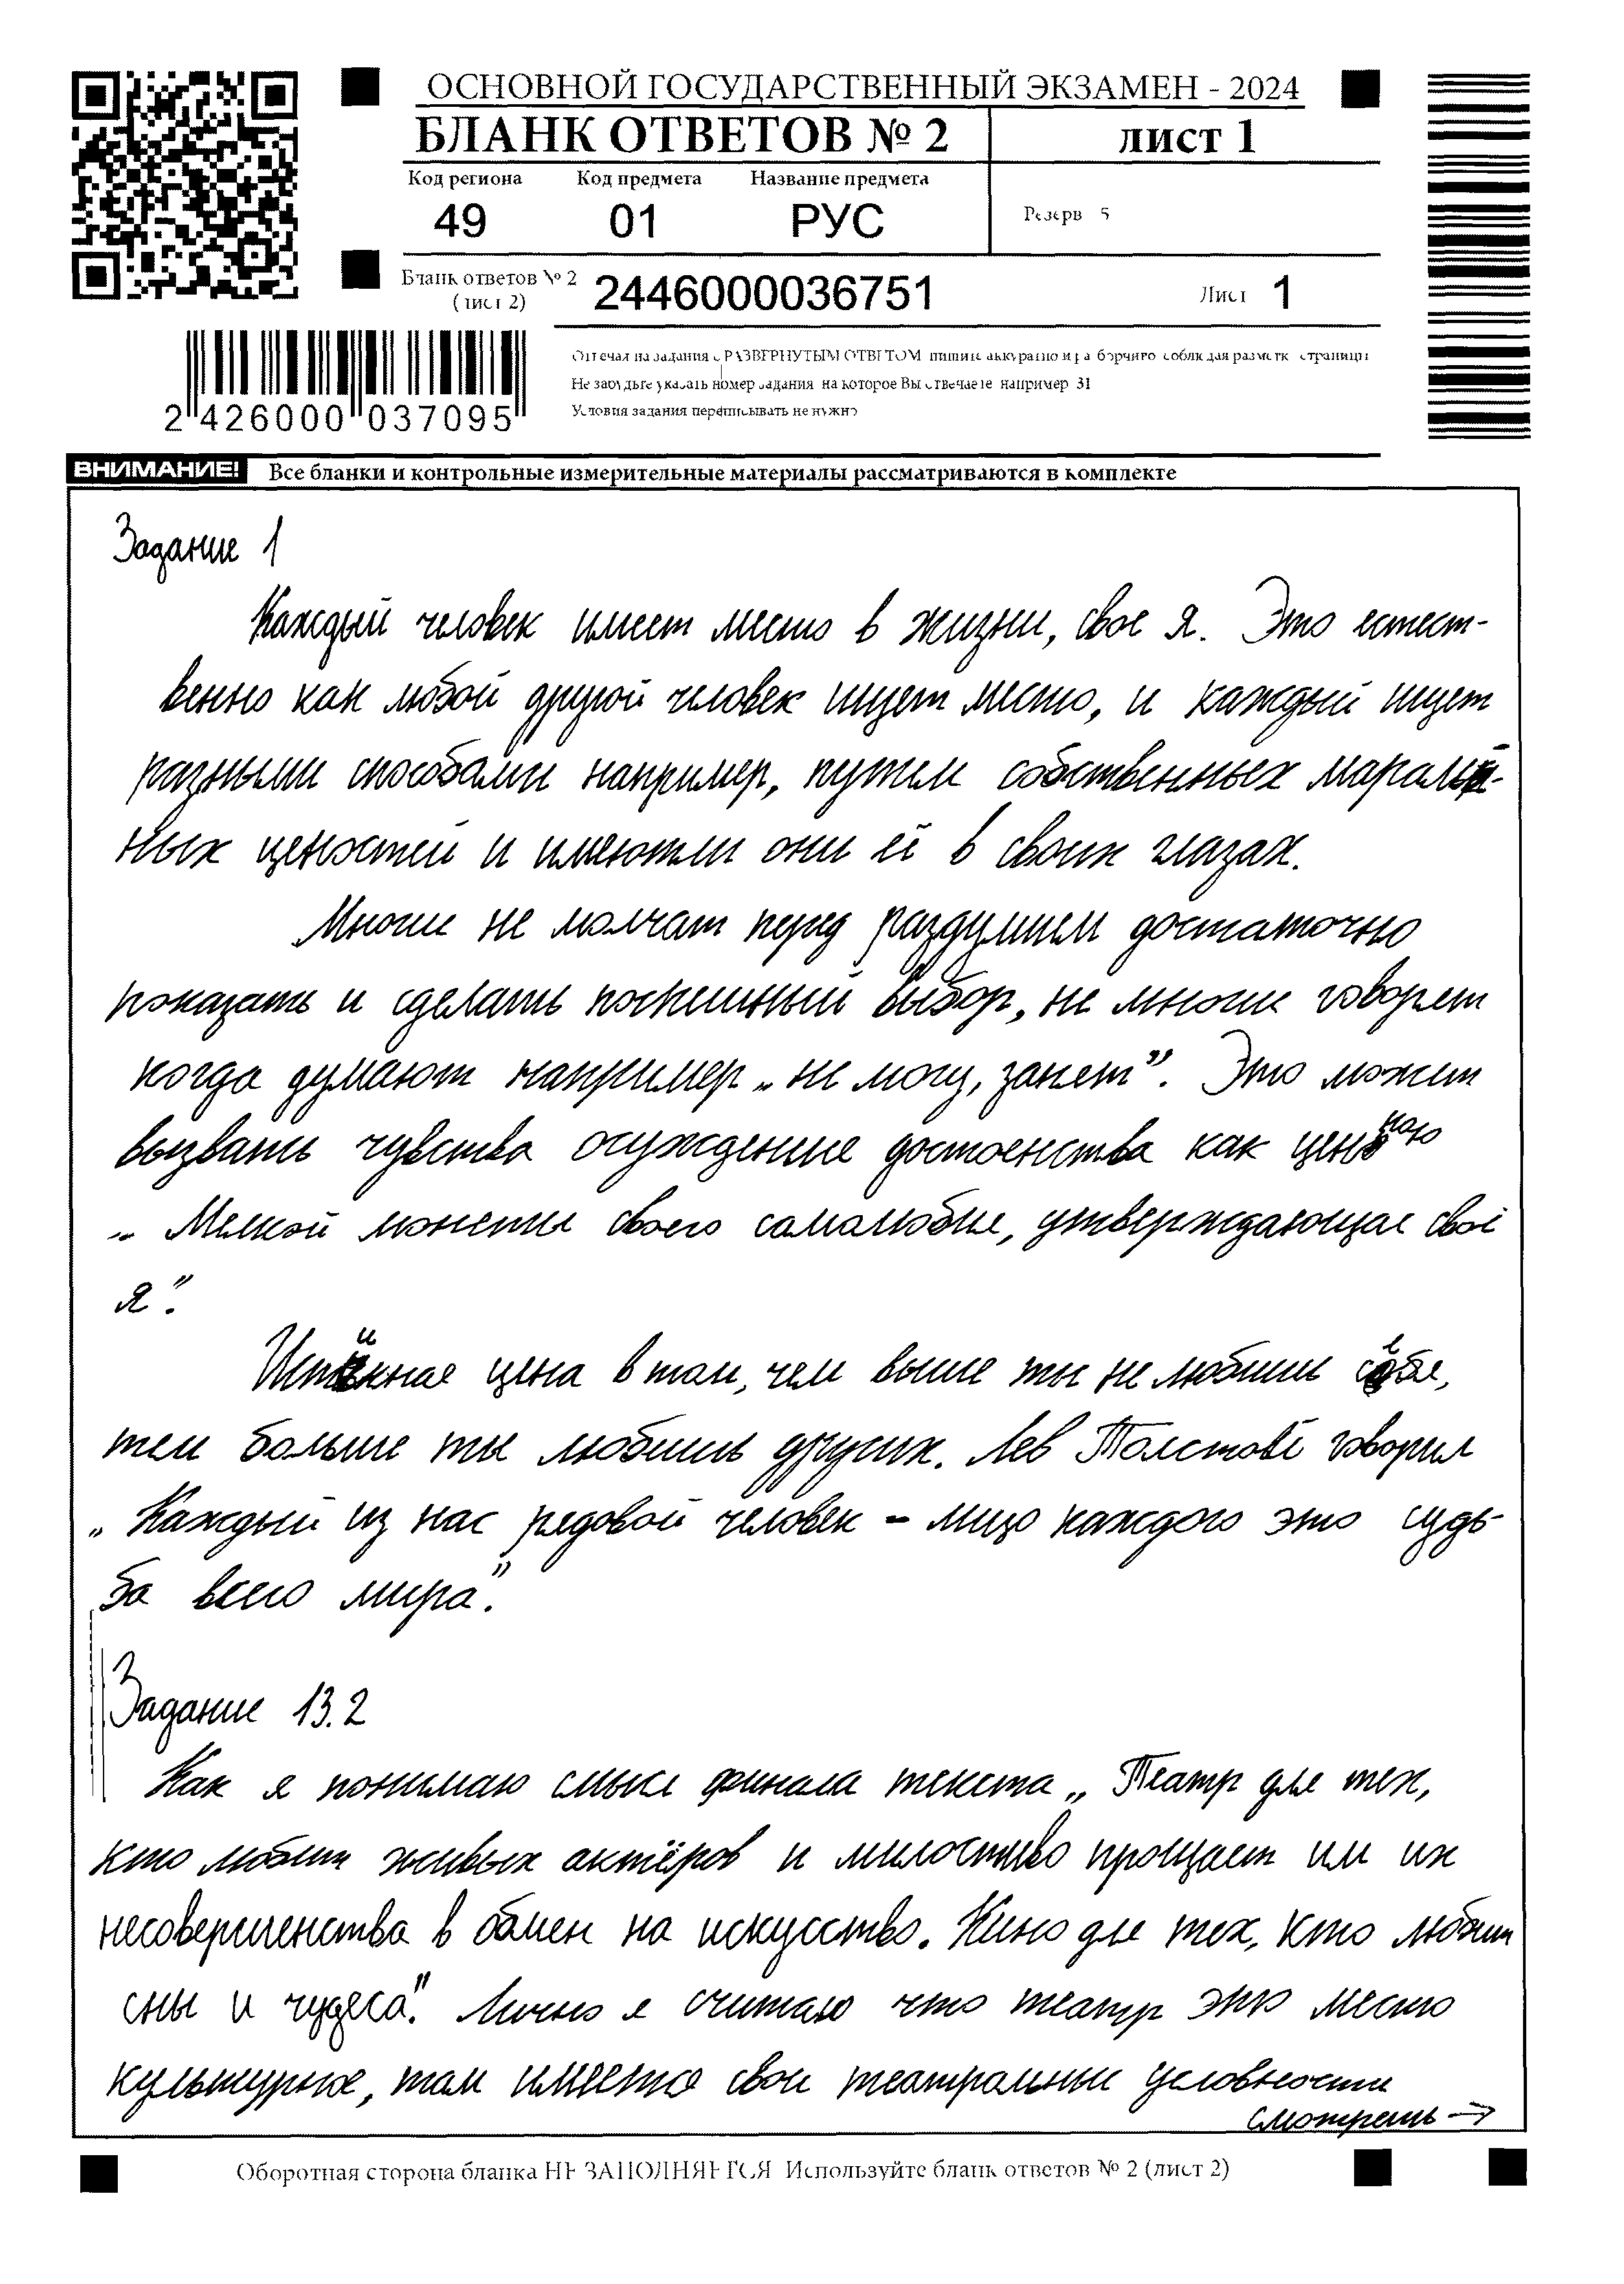 ОСНОВНОЙ ГОСУДАРСТВЕННЫЙ ЭКЗАМЕН - 2024
БЛАНК ОТВЕТОВ № 2
ЛИСТ 1
Код региона Код предмета Название предмета
49 01 РУС
Резерв 5
Бланк ответов № 2
(лист 2)
2446000036751
Лист 1
2 426000 037095
Отвечая на задания с РАЗВЕРНУТЫМ ОТВЕТОМ пишите аккуратно и разборчиво соблюдая разметку страницы
Не забудьте указать номер задания на которое Вы отвечаете например 31
Условия задания переписывать не нужно
ВНИМАНИЕ! Все бланки и контрольные измерительные материалы рассматриваются в комплекте
Задание 1
Каждый человек имеет место в жизни, свое я. Это естест-
венно как любой другой человек ищет место, и каждый ищет
разными способами например, путем собственных мараль-
ных ценостей и имеютли они её в своих глазах.
Многие не молчат перед раздумием достаточно
показать и сделать поспешный выбор, не многие говорят
когда думают например „не могу, занет”. Это может
вызвать чувства осуждение достоенства как ценною
„ Мелкой монеты своего самалюбие, утверждающае своё
я”.
Истинная цена в том, чем выше ты не любиш себя,
тем больше ты любишь других. Лев Толстой говорил
„ Каждый из нас рядовой человек - лицо каждого это судь-
ба всего мира”.
Задание 13.2
Как я понимаю смысл финала текста „ Театр для тех,
кто любит живых актёров и милостиво прощает им их
несовершенства в обмен на искусство. Кино для тех, кто любит
сны и чудеса”. Лично я считаю что театр это место
культурное, там имеется свои театральные условности
смотреть →
Оборотная сторона бланка НЕ ЗАПОЛНЯЕТСЯ Используйте бланк ответов № 2 (лист 2)